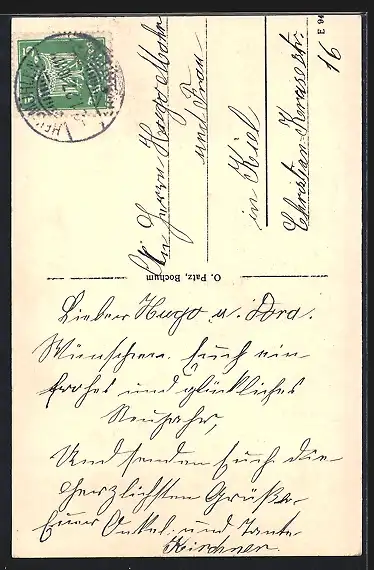 An Herrn Hugo Mohr
und Frau
in Kiel
Christian-Krusestr.
16
E 94
O. Patz, Bochum
Lieber Hugo u. Dora.
Wünschen Euch ein
frohes und glückliches
Neujahr,
Und senden Euch die
herzlichsten Grüße
Euer Onkel und Tante
Kirchner.